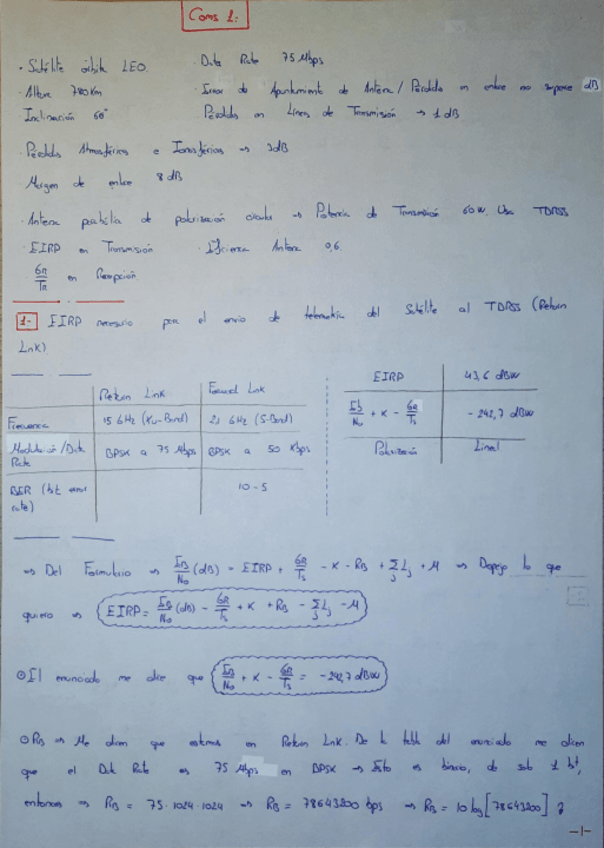 Coms 1.
· Satélite órbita LEO. · Data Rate 75 Mbps
· Altura 780 Km · Error de Apuntamiento de Antena / Pérdida en enlace no supere dB
· Inclinación 60° Pérdidas en Líneas de Transmisión → 1 dB
· Pérdidas Atmosféricas e Ionosféricas → 3dB
Margen de enlace 8 dB
· Antena de polarización → Potencia de Transmisión 60 W. Usa TDRSS
· EIRP en Transmisión · Eficiencia Antena 0,6
· GR/TR en Recepción
1.- EIRP necesario para el envío de telemetría del Satélite al TDRSS (Return
Link)
Return Link Forward Link
Frecuencia 15 GHz (Ku-Band) 2,1 GHz (S-Band)
Modulación/Data Rate BPSK a 75 Mbps BPSK a 50 Kbps
BER (bit error rate) 10-5
EIRP 43,6 dBW
Eb/No + K - GR/Ts - 242,7 dBW
Polarización Lineal
⇒ Del Formulario ⇒ Eb/No (dB) = EIRP + GR/Ts - K - RB + ∑j Lj + M ⇒ Despejo lo que
quiero ⇒ EIRP = Eb/No (dB) - GR/Ts + K + RB - ∑j Lj - M
⊙ El enunciado me dice que Eb/No + K - GR/Ts = -242,7 dBW
⊙ RB ⇒ Me dicen que estamos en Return Link. De la tabla del enunciado me dicen
que el Data Rate es 75 Mbps en BPSK → Esto es binario, de solo 1 bit,
entonces ⇒ RB = 75·1024·1024 ⇒ RB = 78643200 bps ⇒ RB = 10 log [78643200]
-1-